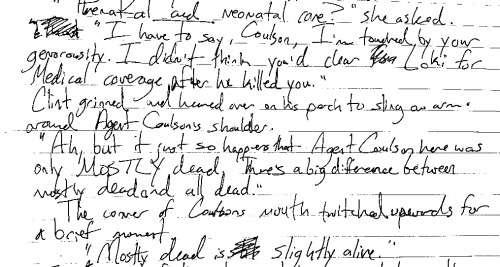 "Prenatal and neonatal care?" she asked.
"I have to say, Coulson, I'm touched by your
generousity. I didn't think you'd clear Loki for
Medical coverage after he killed you."
Clint grinned and leaned over on his perch to sling an arm
around Agent Coulson's shoulder.
"Ah, but it just so happens that Agent Coulson here was
only MOSTLY dead. There's a big difference between
mostly dead and all dead."
The corner of Coulsons mouth twitched upwards for
a brief moment.
"Mostly dead is slightly alive."